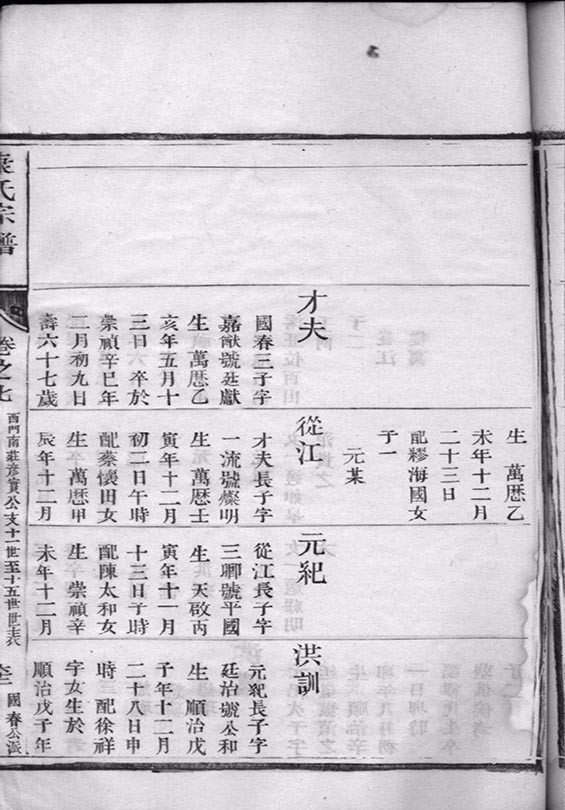 生萬曆乙
未年十二月
二十三日
配繆海國女
子一
元某
才夫
國春三子字
嘉猷號廷獻
生萬曆乙
亥年五月十
三日卒於
崇禎辛巳年
二月初九日
壽六十七歲
從江
才夫長子字
一流號燦明
生萬曆壬
寅年十二月
初二日午時
配蔡懷田女
生萬曆甲
辰年十二月
元紀
從江長子字
三卿號平國
生天啟丙
寅年十一月
十三日子時
配陳太和女
生崇禎辛
未年十二月
洪訓
元紀長子字
廷治號公和
生順治戊
子年十二月
二十八日申
時配徐祥
宇女生於
順治戊子年
氏宗譜
卷之七
西門南莊彦實公支十一世至十五世世表
國春公派